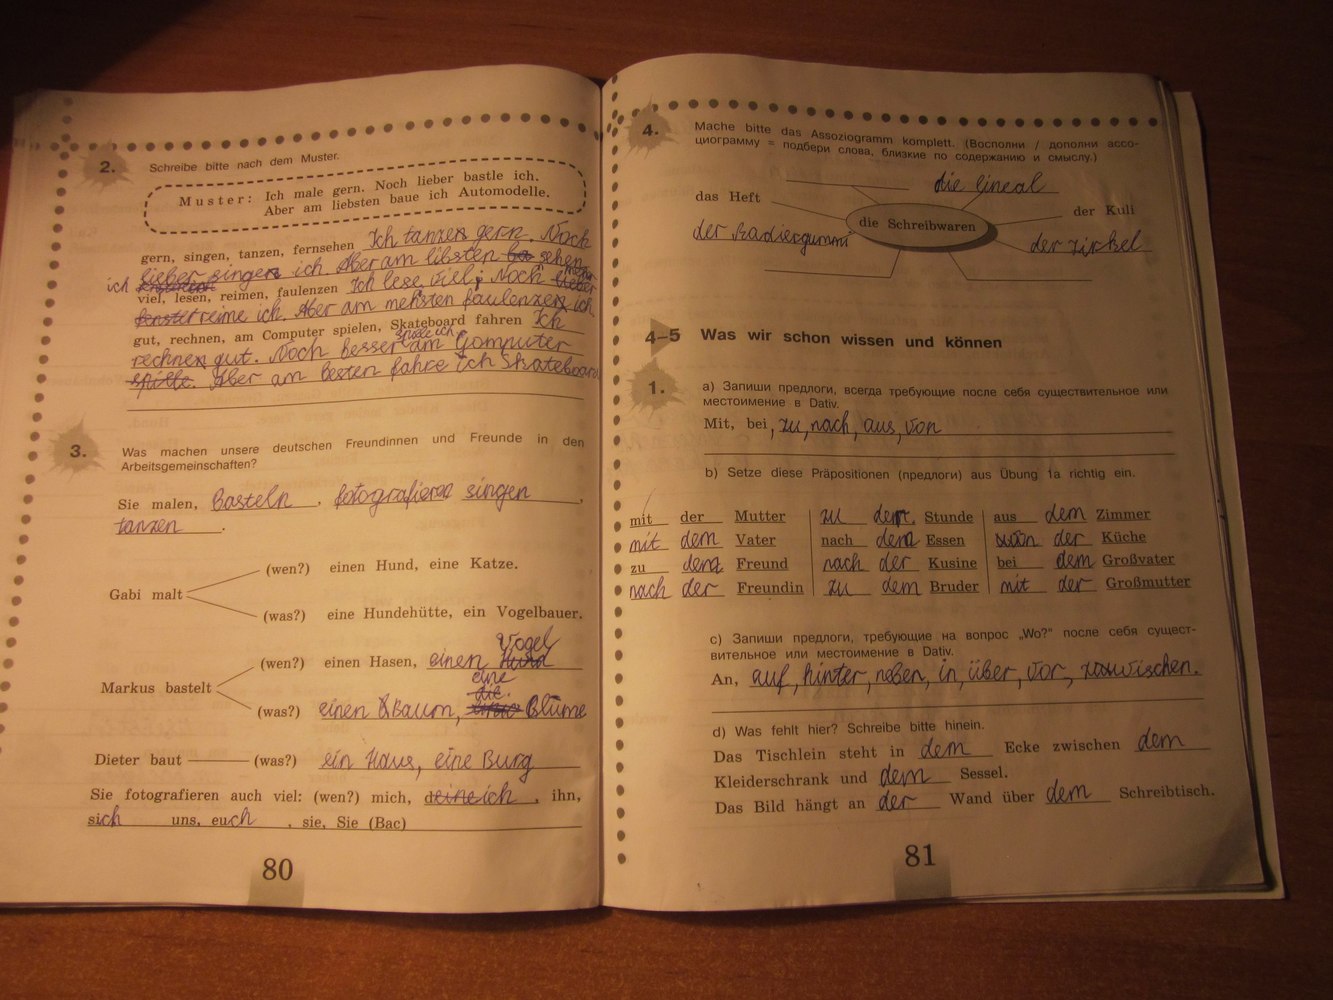 2.
Schreibe bitte nach dem Muster.
Muster: Ich male gern. Noch lieber bastle ich.
Aber am liebsten baue ich Automodelle.
gern, singen, tanzen, fernsehen Ich tanzen gern. Noch
lieber singen ich. Aber am libsten sehen
ich
viel, lesen, reimen, faulenzen Ich lese viel, Noch
reime ich. Aber am mehsten faulenzen ich
gut, rechnen, am Computer spielen, Skateboard fahren Ich
spiele ich
rechnen gut. Noch besser am Computer
spille. Aber am besten fahre ich Skateboard
3.
Was machen unsere deutschen Freundinnen und Freunde in den
Arbeitsgemeinschaften?
Sie malen, Basteln, fotografieren singen,
tanzen.
Gabi malt
(wen?) einen Hund, eine Katze.
(was?) eine Hundehütte, ein Vogelbauer.
Markus bastelt
Vogel
(wen?) einen Hasen, einen Hund
eine
die.
(was?) einen Baum, Blume
Dieter baut (was?) ein Haus, eine Burg
Sie fotografieren auch viel: (wen?) mich, dich, ihn,
sich uns, euch, sie, Sie (Вас)
80
4.
Mache bitte das Assoziogramm komplett. (Восполни / дополни ассо-
циограмму = подбери слова, близкие по содержанию и смыслу.)
die Lineal
das Heft
der Kuli
die Schreibwaren
der Radiergummi
der Zirkel
4–5 Was wir schon wissen und können
1.
a) Запиши предлоги, всегда требующие после себя существительное или
местоимение в Dativ.
Mit, bei, zu, nach, aus, von
b) Setze diese Präpositionen (предлоги) aus Übung 1a richtig ein.
mit der Mutter zu dem. Stunde aus dem Zimmer
mit dem Vater nach dem Essen der Küche
zu dem Freund nach der Kusine bei dem Großvater
nach der Freundin zu dem Bruder mit der Großmutter
c) Запиши предлоги, требующие на вопрос „Wo?" после себя сущест-
вительное или местоимение в Dativ.
An, auf, hinter, neben, in, über, vor, zwischen.
d) Was fehlt hier? Schreibe bitte hinein.
Das Tischlein steht in dem Ecke zwischen dem
Kleiderschrank und dem Sessel.
Das Bild hängt an der Wand über dem Schreibtisch.
81